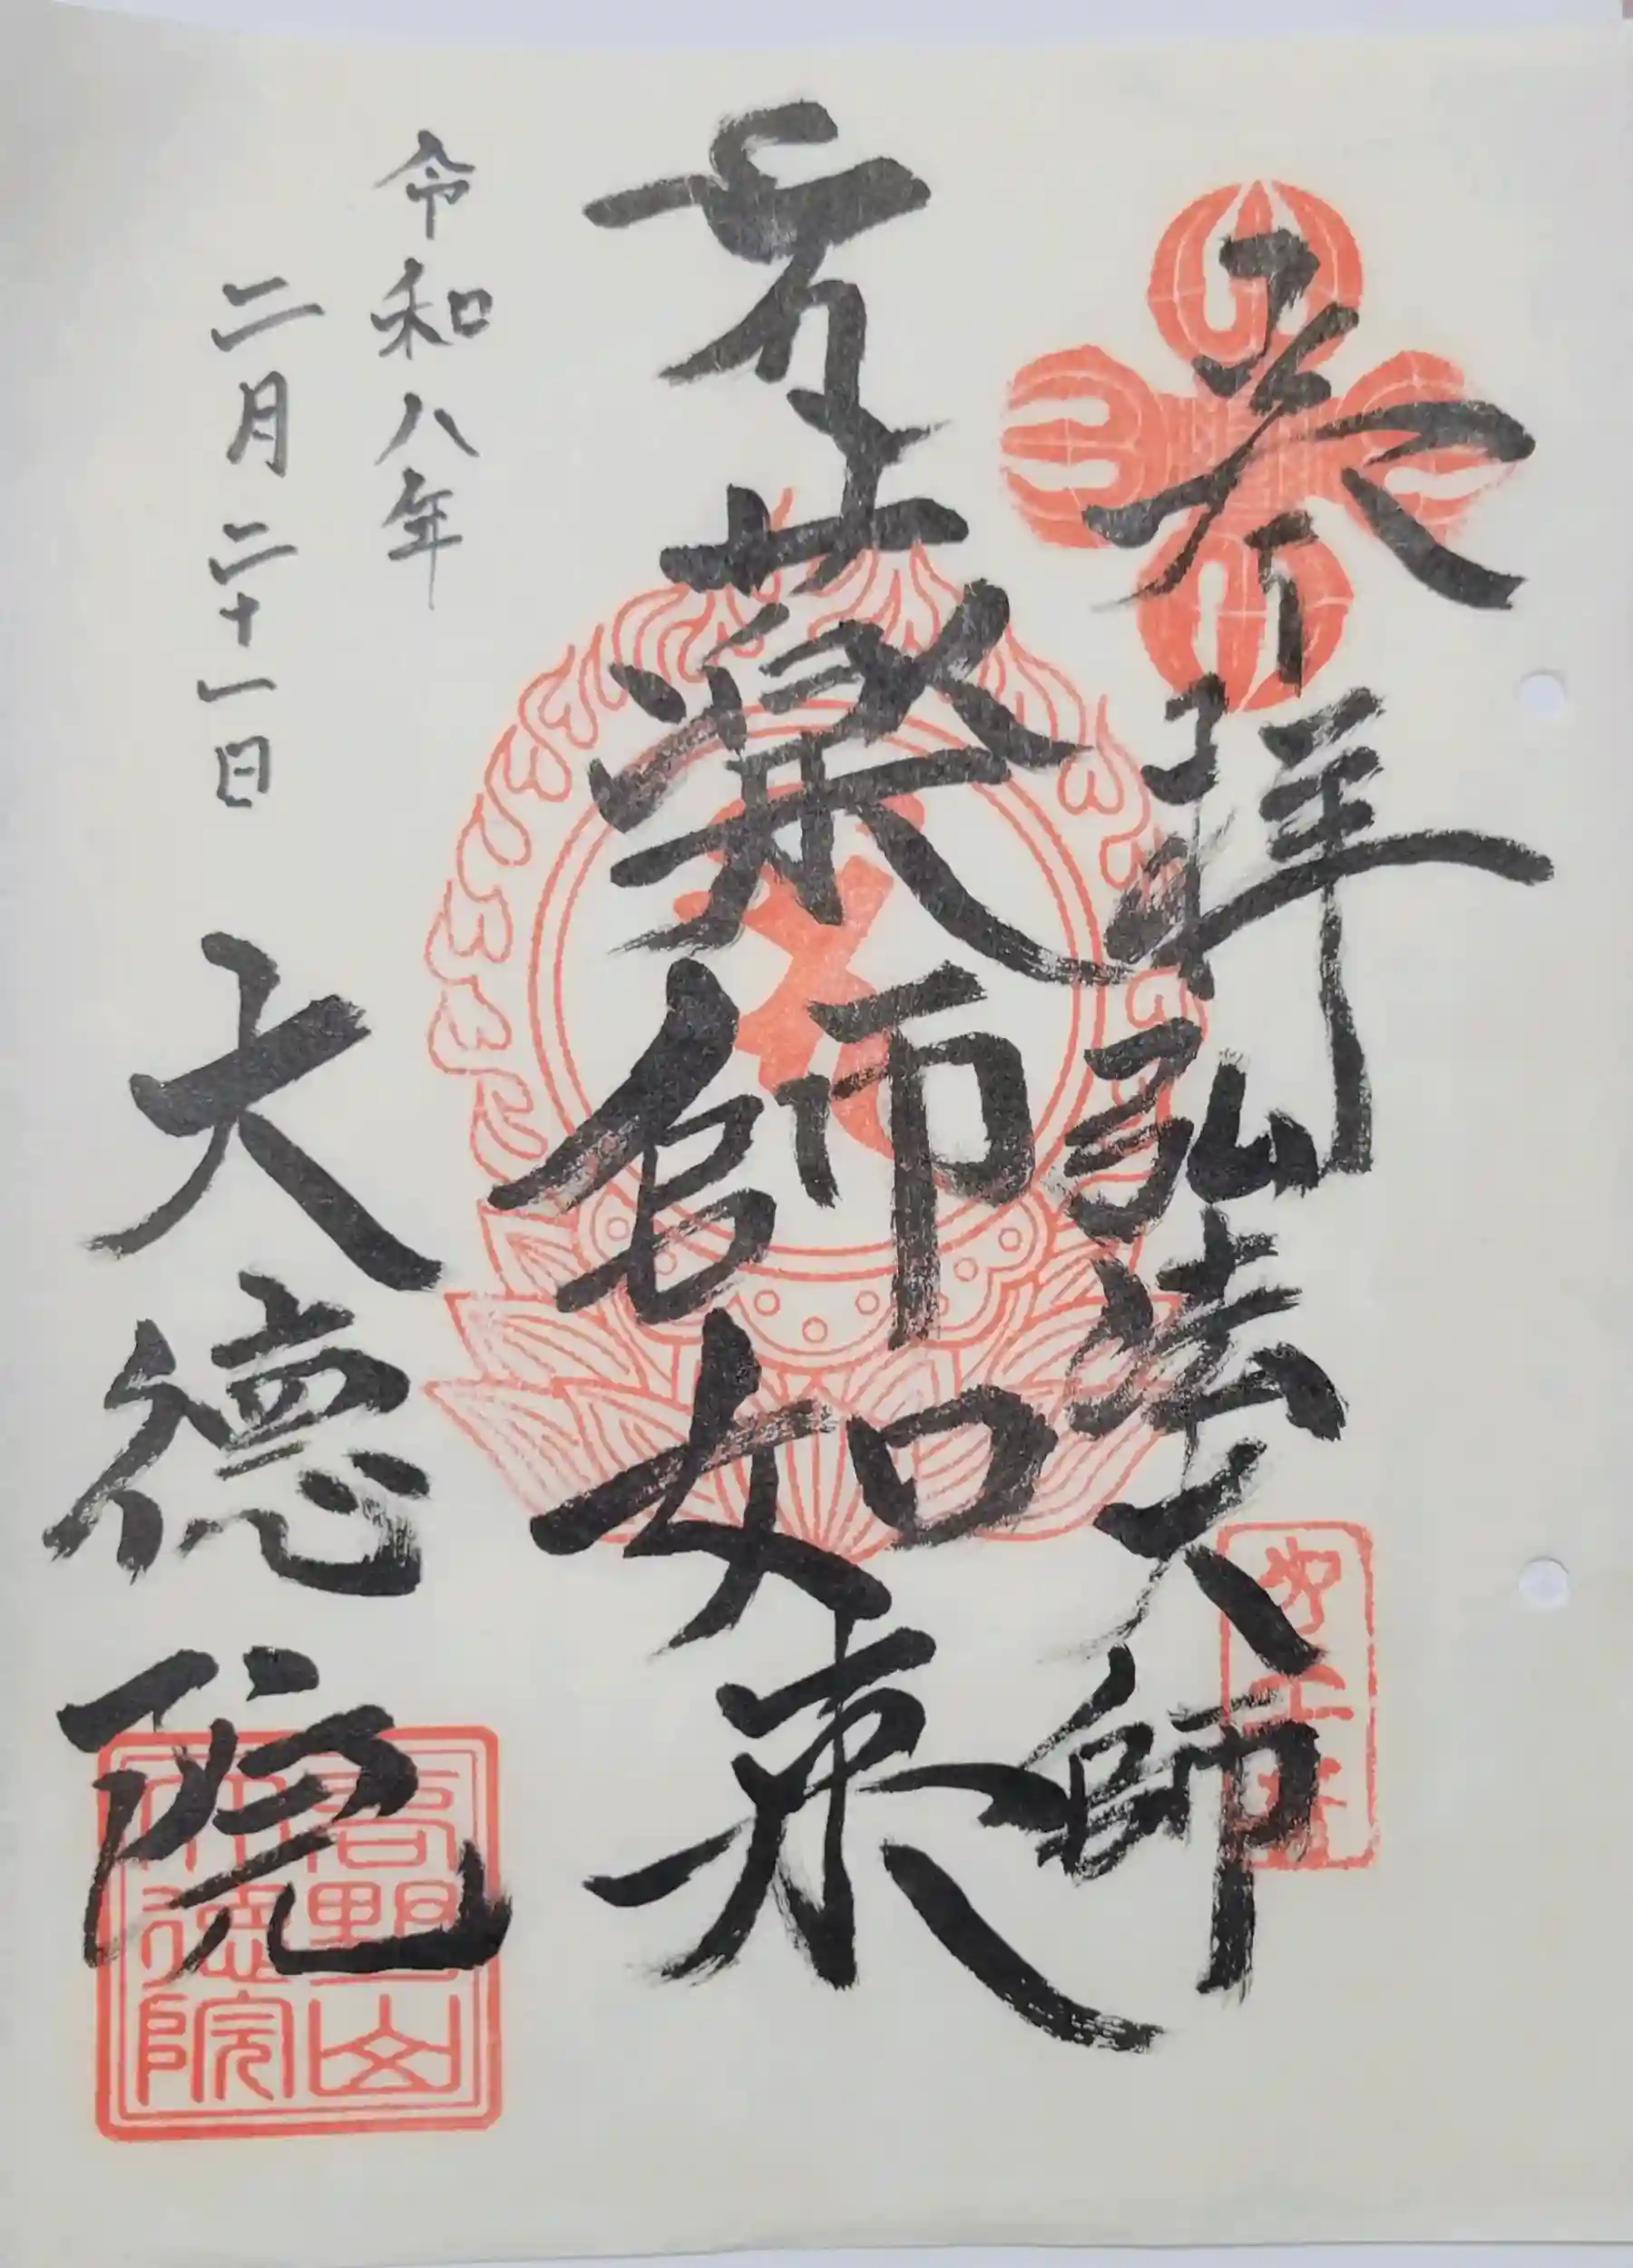 奉拝弘法大師
薬師如来
令和八年
二月二十一日
大徳院
高野山
大徳院